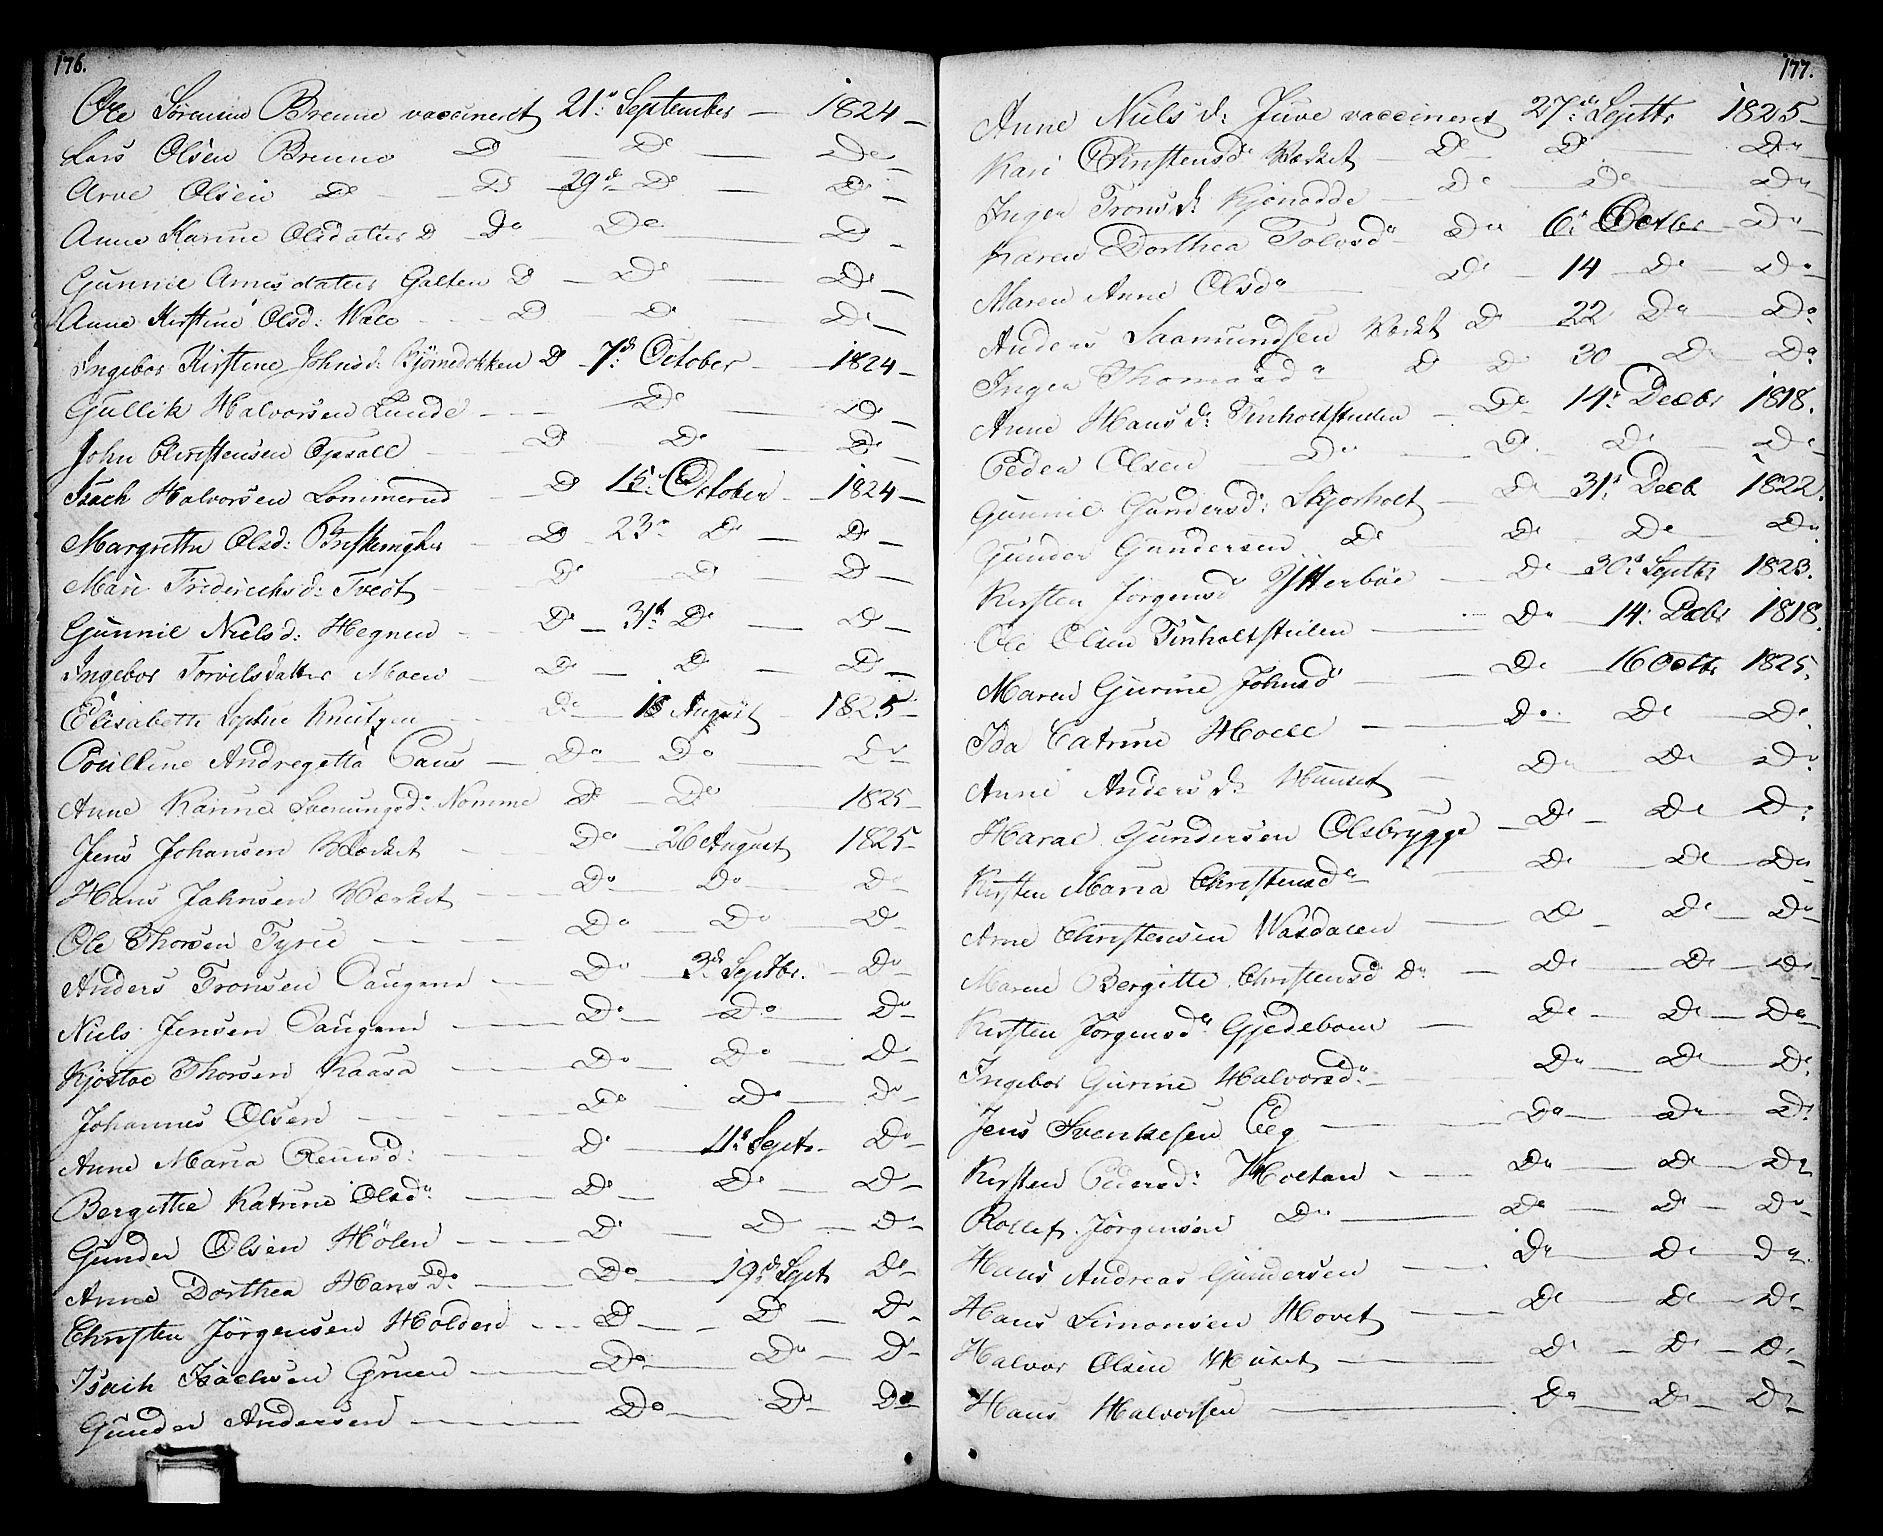 176.
Ole Sörensen Brenne vaccineret 21: September — 1824 —
Lars Olsen Brenne D — D° — D° —
Arve Olsen D° — D — 29de D° — D° —
Anne Karine Olsdatter D — D° D° — D° —
Gunnil Arnesdatter Galten D — D° — D° —
Anne Kirstine Olsd: D D° — D° —
Ingebor Kirstine Johnsd: D° 7de October — 1824 —
Gullik Halvorsen Lunde — D° — D° —
John Christensen Opsall — D — D° — D° —
Isach Halvorsen Lommerud — D° 15: October — 1824 —
Margrethe Olsd: — D° — 23° D° — D° —
Mari Friderichsd: Tvedt — D° — D° — D° —
Gunnil Nielsd: Hegnen — D° — 31t D° — D° —
Ingebor Torvilsdatter Moen — D° — D° — D° —
Elisabeth Sophie Knutzen — D° — 18 August — 1825 —
Poulline Andregetta Paus — D° — D° — D°
Anne Karine Svenungsd: Nomme D° — D° 1825 —
Jens Johansen Værket — D° — 26 August 1825 —
Hans Jahnsen Værket — D° — D° — D° —
Ole Thorsen Tyrie — D° — D° — D° —
Anders Tronsen Haugene — D° — 3de Septbr. — D° —
Niels Jensen Haugene — D° — D° — D° —
Kjöstol Thorsen Kaasa — D° — D° — D° —
Johannes Olsen — D° — D° — D° —
Anne Maria Reiersd: — D° — 11t Sept. — D° —
Bergitthe Katrine Olsd: — D° — D° — D° —
Gunder Olsen Hölen — D° — D° — D° —
Anne Dorthea Hansd: — D° — 19de Sept D° —
Christen Jörgensen Holden — D° — D° — D° —
Isach Isachsen Gruen — D° — D° — D° —
Gunder Andersen — D° — D° — D° —
177.
Anne Nielsd: Juve vaccineret 27de Septbr 1825 —
Kari Christensd: Værket D° — D° — D° —
Inger Tronsd: D° — D° — D°
Karen Dorthea Tolvsd: D° 6t Octbr — D° —
Maren Anne Olsd: — D° — 14 — D° — D° —
Anders Saamundsen Værket D° — 22 D° — D°
Inger Thomasd: D° D° 20 D° — D°
Anne Hansd: Finholtstulen — D° — 14: Decbr 1818.
Peder Olsen — D° — D° — D° — D°
Gunnil Gundersd: Skjorholt — D° — 31t Decb 1822.
Gunder Gundersen D° D° D° — D°
Kirsten Jörgensd: Ytterböe — D° — 30t Septbr 1823.
Ole Olsen Finholtstulen — D° — 14: Decbr 1818.
Maren Gurine Johnsd: — D° — 16 Octbr 1825.
Ida Catrine Moell — D° — D° — D°
Anne Andersd: — D° — D° — D°
Haral Gundersen Olsbrygge — D° — D° — D°
Kirsten Maria Christensd: — D° — D° — D° —
Arne Christensen — D° — D° — D° —
Maren Bergitte Christensd: D° — D° — D° — D° —
Kirsten Jörgensd: Gjedeboen — D° — D° — D° —
Ingebor Gurine Halvorsd: — D° — D° — D°
Jens Svenkesen Eeg — D° — D° — D°
Kirsten Pedersd: Holtan — D° — D° — D°
Rollef Jörgensen D° — D° — D° — D° —
Hans Andreas Gundersen — D° — D° — D°
Hans Simonsen Hovet — D° — D° — D° —
Halvor Olsen — D° — D° — D° —
Hans Halvorsen — D° — D° — D° —